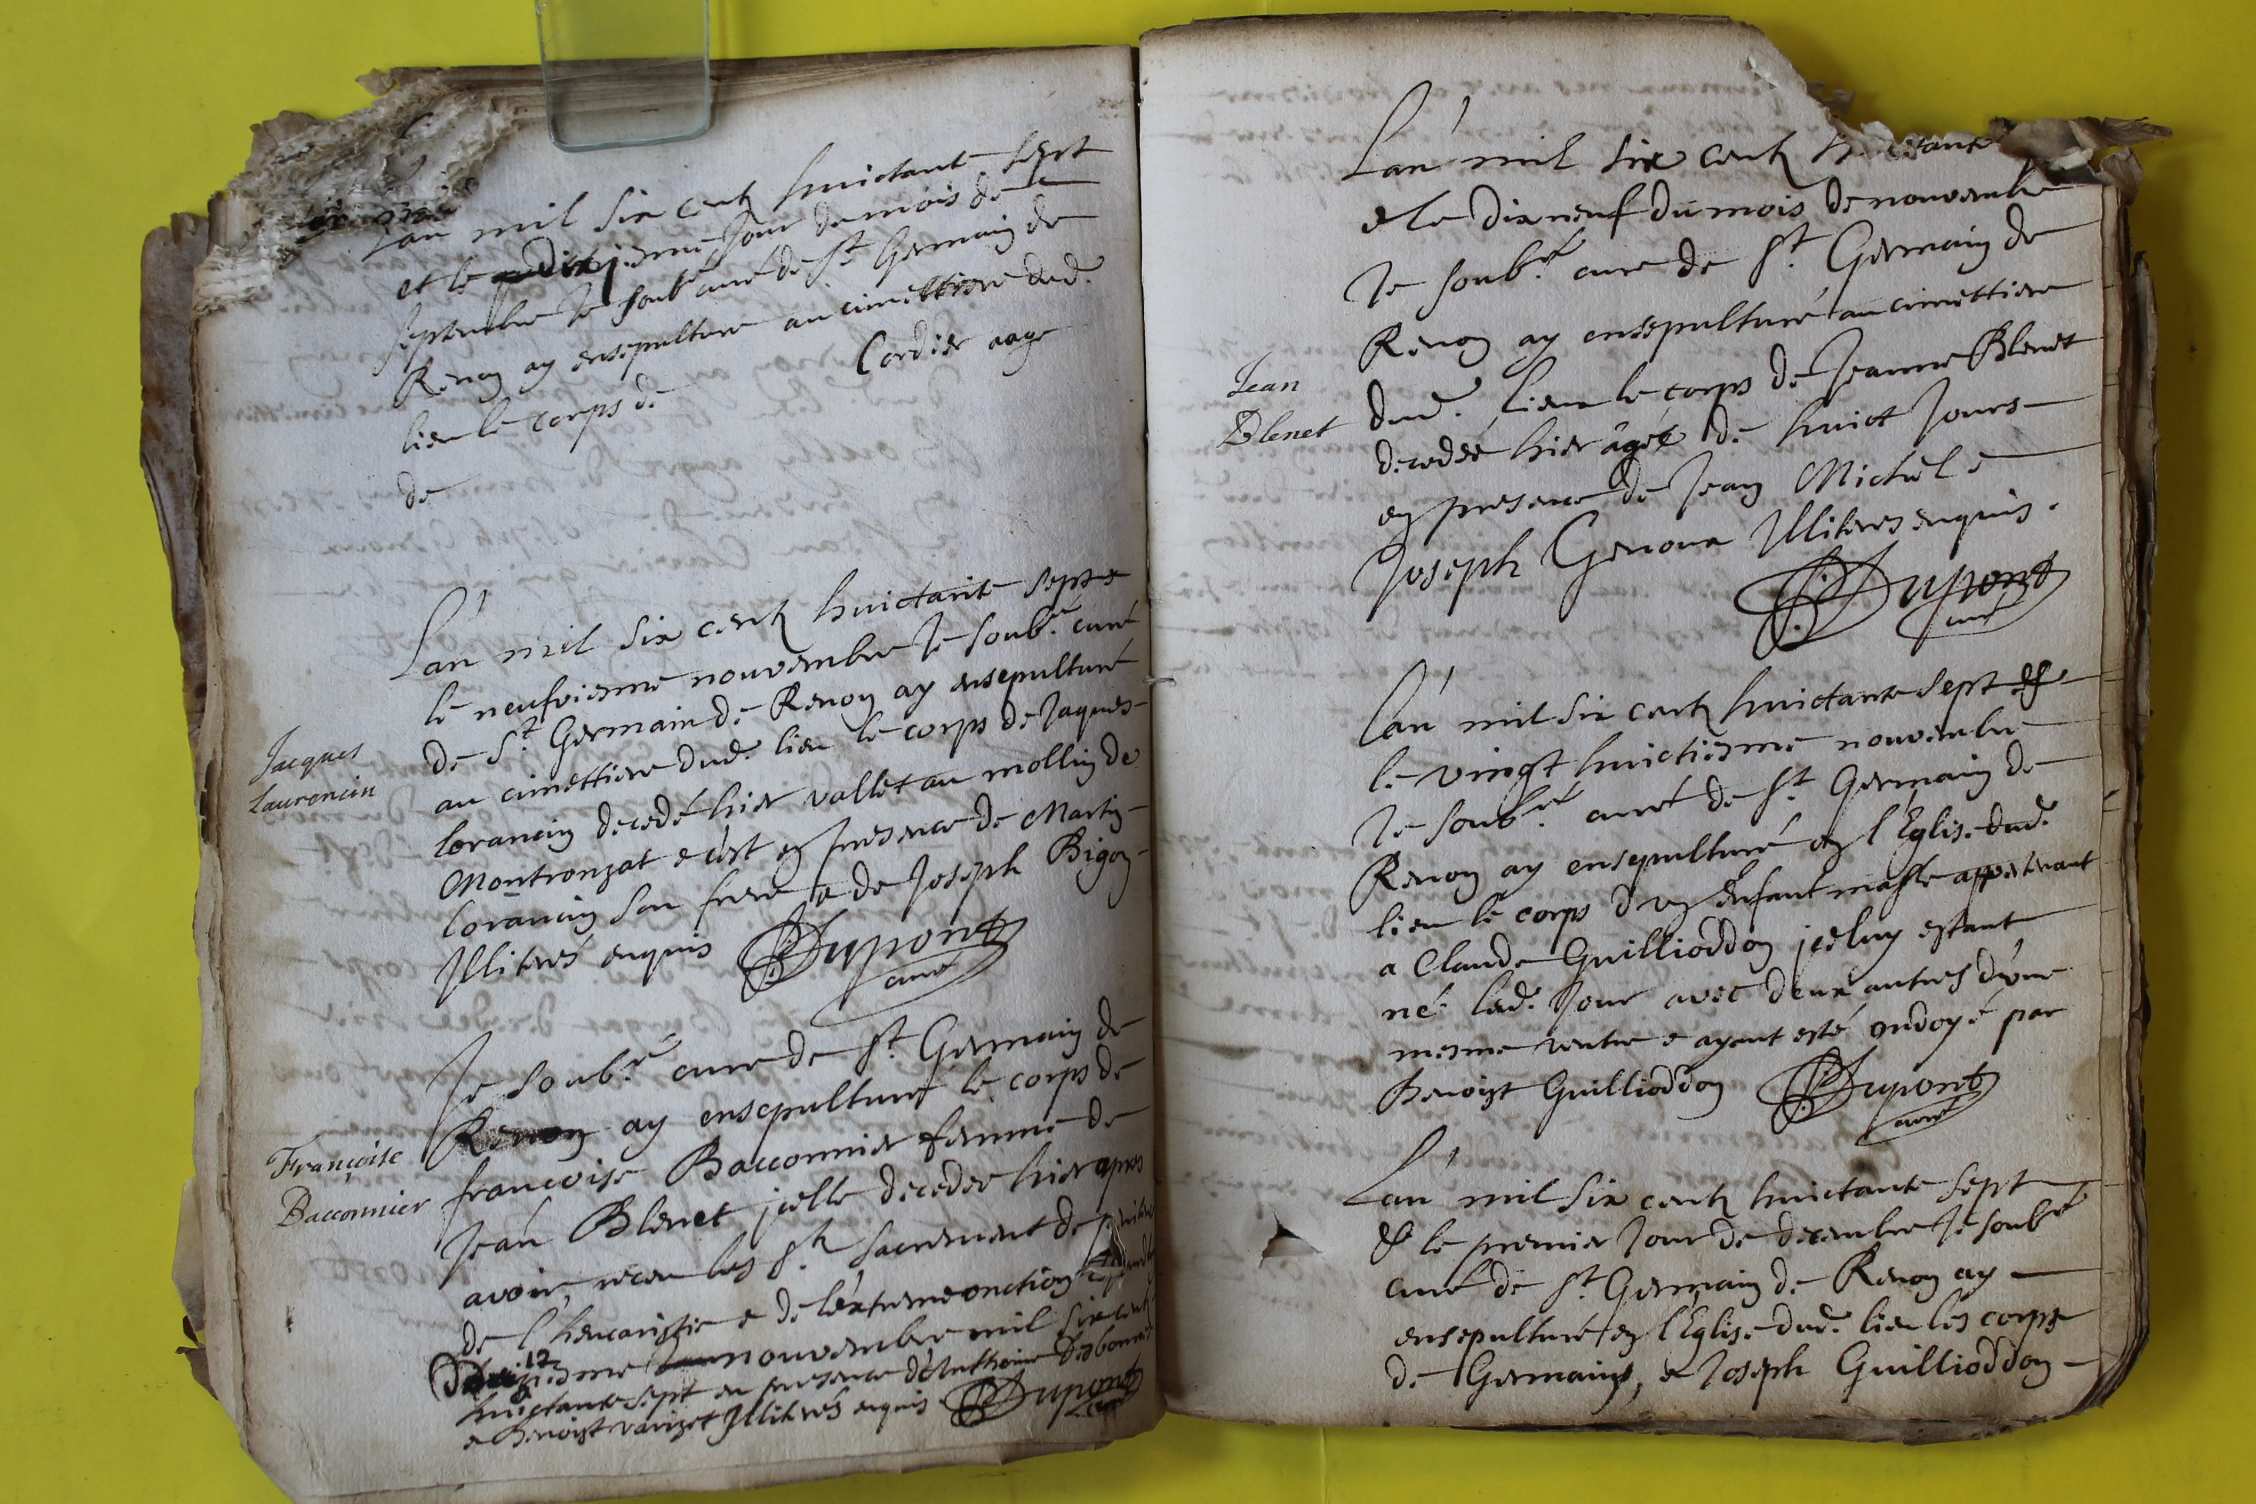 L'an mil six centz huictante sept
et le dixiesme Jour du mois de
septembre Je soub.é curé de S.t Germain de
Renon ay ensepulture au cimettiere dud.
lieu le corps de Cordier aage
de
L'an mil six centz huictante sept e
le neufviesme nouvembre Je soub.é curé
de S.t Germain de Renon ay ensepulturé
au cimettiere dud. lieu le corps de Jaques
Jacques
Laurencin
lorancin decedé hier vallet au mollin de
Montronzat e c'est en presence de Martin
lorancin son frere e de Joseph Bigon
Illiterés enquis Dupont
curé
Je soub.é cure de S.t Germain de
Renon ay ensepulturé le corps de
Françoise
Bacconnier
francoise Bacconnier femme de
Jean Blenet jcelle decedee hier apres
avoir receu les S.tz sacrement de
de l'heucaristie e de l'extremeonction
12 nouvembre mil six centz
huictante sept en presence d'Anthoine
e Benoist varizet Illiterés enquis Dupont
curé
L'an mil six centz huictante
e le dix neuf du mois de nouvembre
Je soub.é cure de S.t Germain de
Renon ay ensepulturé au cimettiere
Jean
Blenet
dud. lieu le corps de Jeanne Blenet
decedée hier âgée de huict Jours
en presence de Jean Michel e
Joseph Genoux Illiteres enquis.
Dupont
curé
L'an mil six centz huictante sept &
le vingt huictiesme nouvembre
Je soub.é curé de S.t Germain de
Renon ay ensepulturé en l'Eglise dud.
lieu le corps d'un Enfant masle appartenant
a Claude Guillioddon jceluy estant
né led. Jour avec deux autres d'une
mesme ventre e ayant esté ondoyé par
Benoist Guillioddon Dupont
curé
L'an mil six centz huictante sept
& le premier Jour de decembre Je soub.é
curé de S.t Germain de Renon ay
ensepulturé en l'Eglise dud. lieu les corps
de Germain, e Joseph Guillioddon